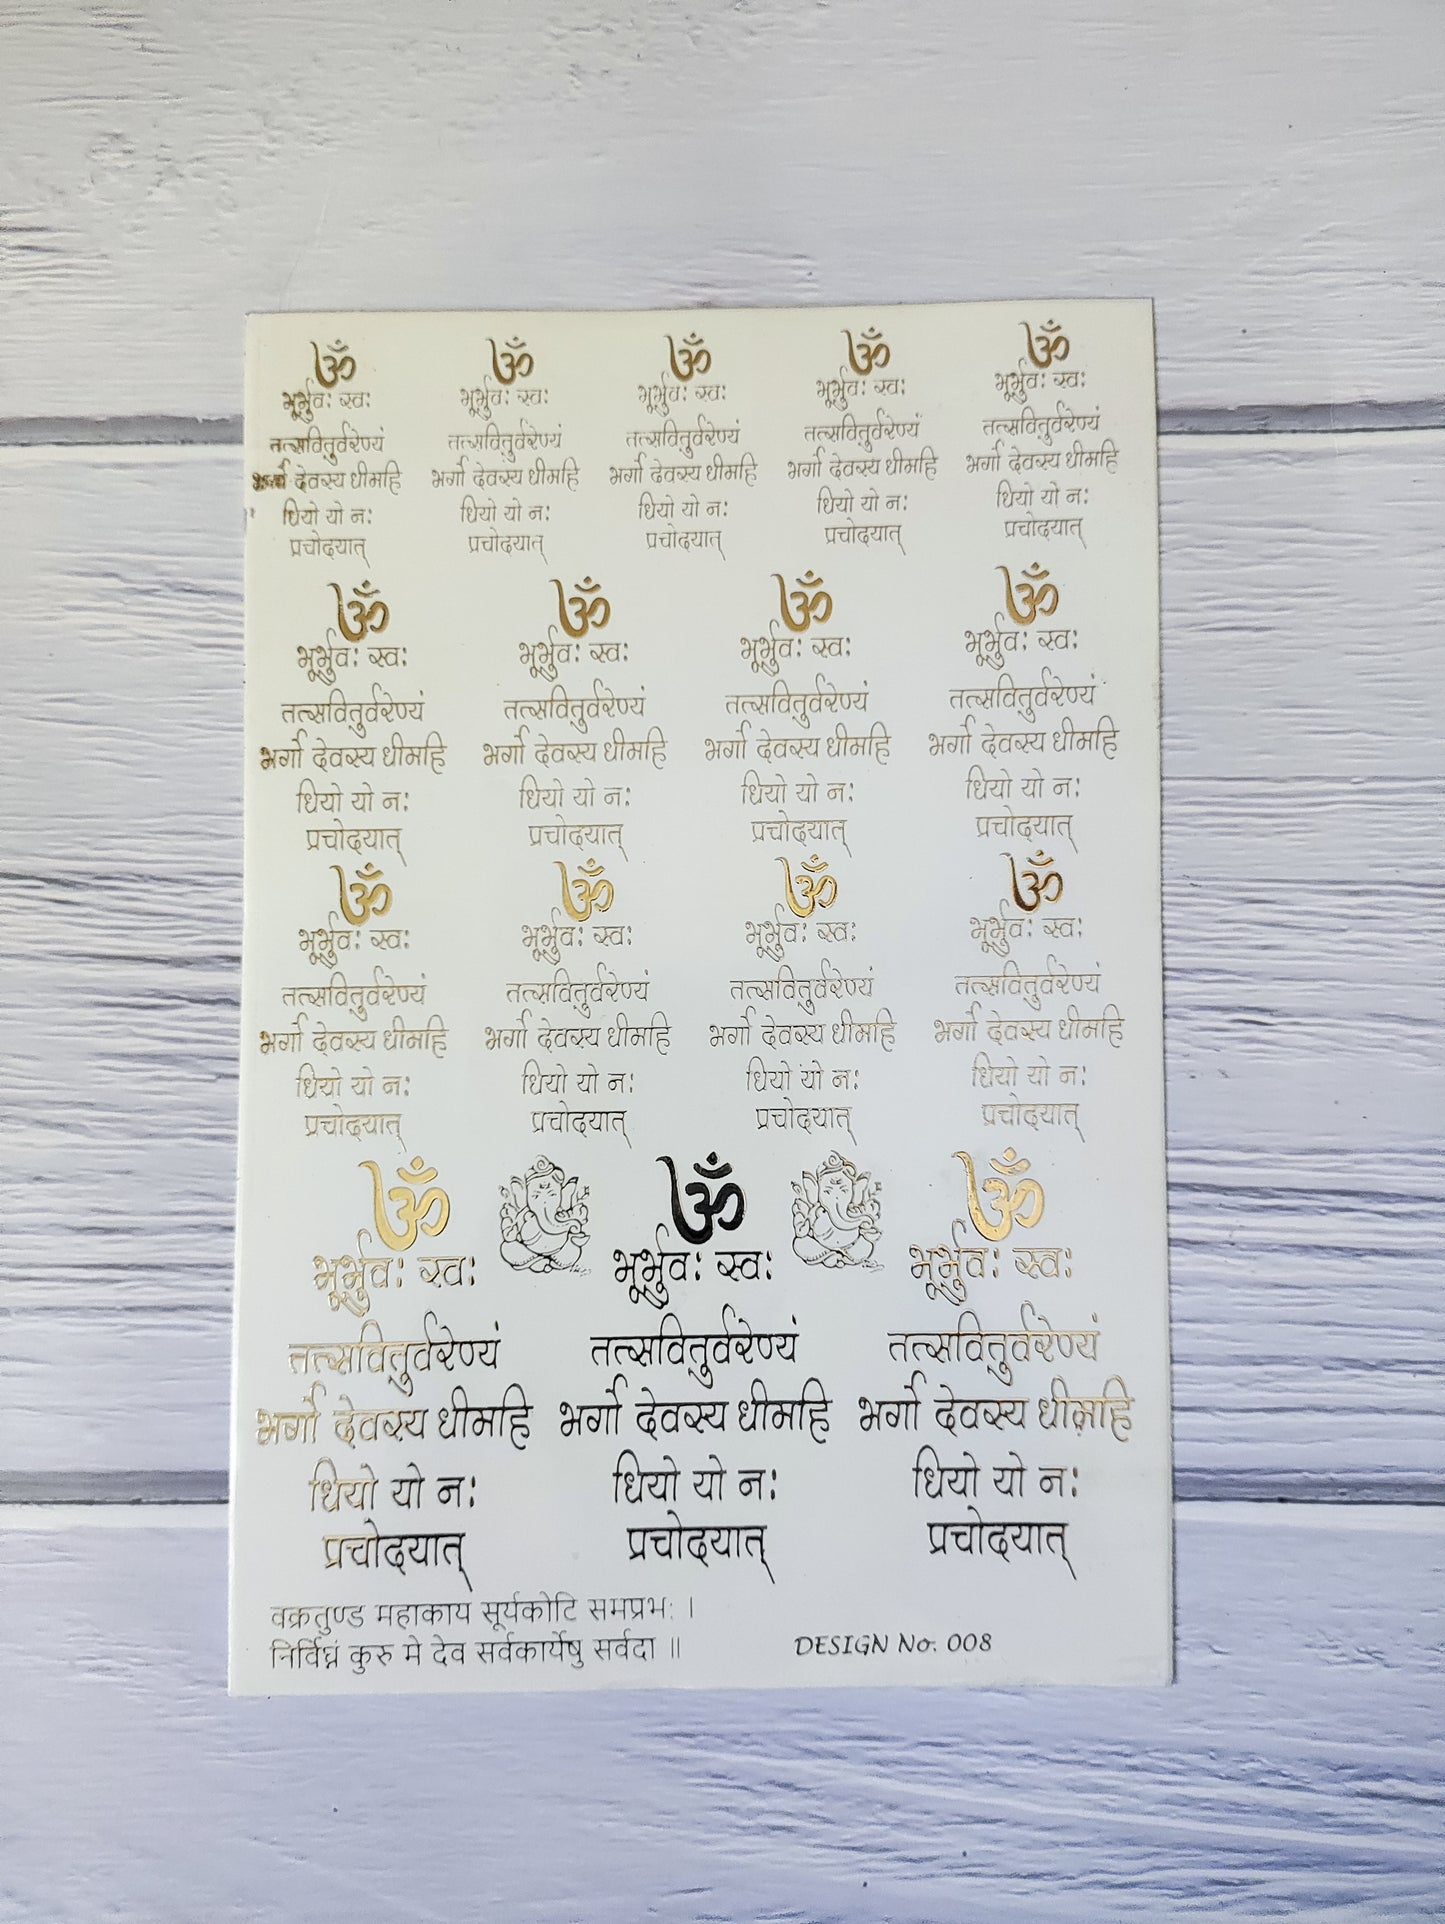 ॐ
भूर्भुवः स्वः
तत्सवितुर्वरेण्यं
देवस्य धीमहि
धियो यो नः
प्रचोदयात्
ॐ
भूर्भुवः स्वः
तत्सवितुर्वरेण्यं
भर्गो देवस्य धीमहि
धियो यो नः
प्रचोदयात्
ॐ
भूर्भुवः स्वः
तत्सवितुर्वरेण्यं
भर्गो देवस्य धीमहि
धियो यो नः
प्रचोदयात्
ॐ
भूर्भुवः स्वः
तत्सवितुर्वरेण्यं
भर्गो देवस्य धीमहि
धियो यो नः
प्रचोदयात्
ॐ
भूर्भुवः स्वः
तत्सवितुर्वरेण्यं
भर्गो देवस्य धीमहि
धियो यो नः
प्रचोदयात्
ॐ
भूर्भुवः स्वः
तत्सवितुर्वरेण्यं
भर्गो देवस्य धीमहि
धियो यो नः
प्रचोदयात्
ॐ
भूर्भुवः स्वः
तत्सवितुर्वरेण्यं
भर्गो देवस्य धीमहि
धियो यो नः
प्रचोदयात्
ॐ
भूर्भुवः स्वः
तत्सवितुर्वरेण्यं
भर्गो देवस्य धीमहि
धियो यो नः
प्रचोदयात्
ॐ
भूर्भुवः स्वः
तत्सवितुर्वरेण्यं
भर्गो देवस्य धीमहि
धियो यो नः
प्रचोदयात्
ॐ
भूर्भुवः स्वः
तत्सवितुर्वरेण्यं
भर्गो देवस्य धीमहि
धियो यो नः
प्रचोदयात्
ॐ
भूर्भुवः स्वः
तत्सवितुर्वरेण्यं
भर्गो देवस्य धीमहि
धियो यो नः
प्रचोदयात्
ॐ
भूर्भुवः स्वः
तत्सवितुर्वरेण्यं
भर्गो देवस्य धीमहि
धियो यो नः
प्रचोदयात्
ॐ
भूर्भुवः स्वः
तत्सवितुर्वरेण्यं
भर्गो देवस्य धीमहि
धियो यो नः
प्रचोदयात्
ॐ
भूर्भुवः स्वः
तत्सवितुर्वरेण्यं
भर्गो देवस्य धीमहि
धियो यो नः
प्रचोदयात्
ॐ
भूर्भुवः स्वः
तत्सवितुर्वरेण्यं
भर्गो देवस्य धीमहि
धियो यो नः
प्रचोदयात्
ॐ
भूर्भुवः स्वः
तत्सवितुर्वरेण्यं
भर्गो देवस्य धीमहि
धियो यो नः
प्रचोदयात्
वक्रतुण्ड महाकाय सूर्यकोटि समप्रभः ।
निर्विघ्नं कुरु मे देव सर्वकार्येषु सर्वदा ॥
DESIGN No. 008